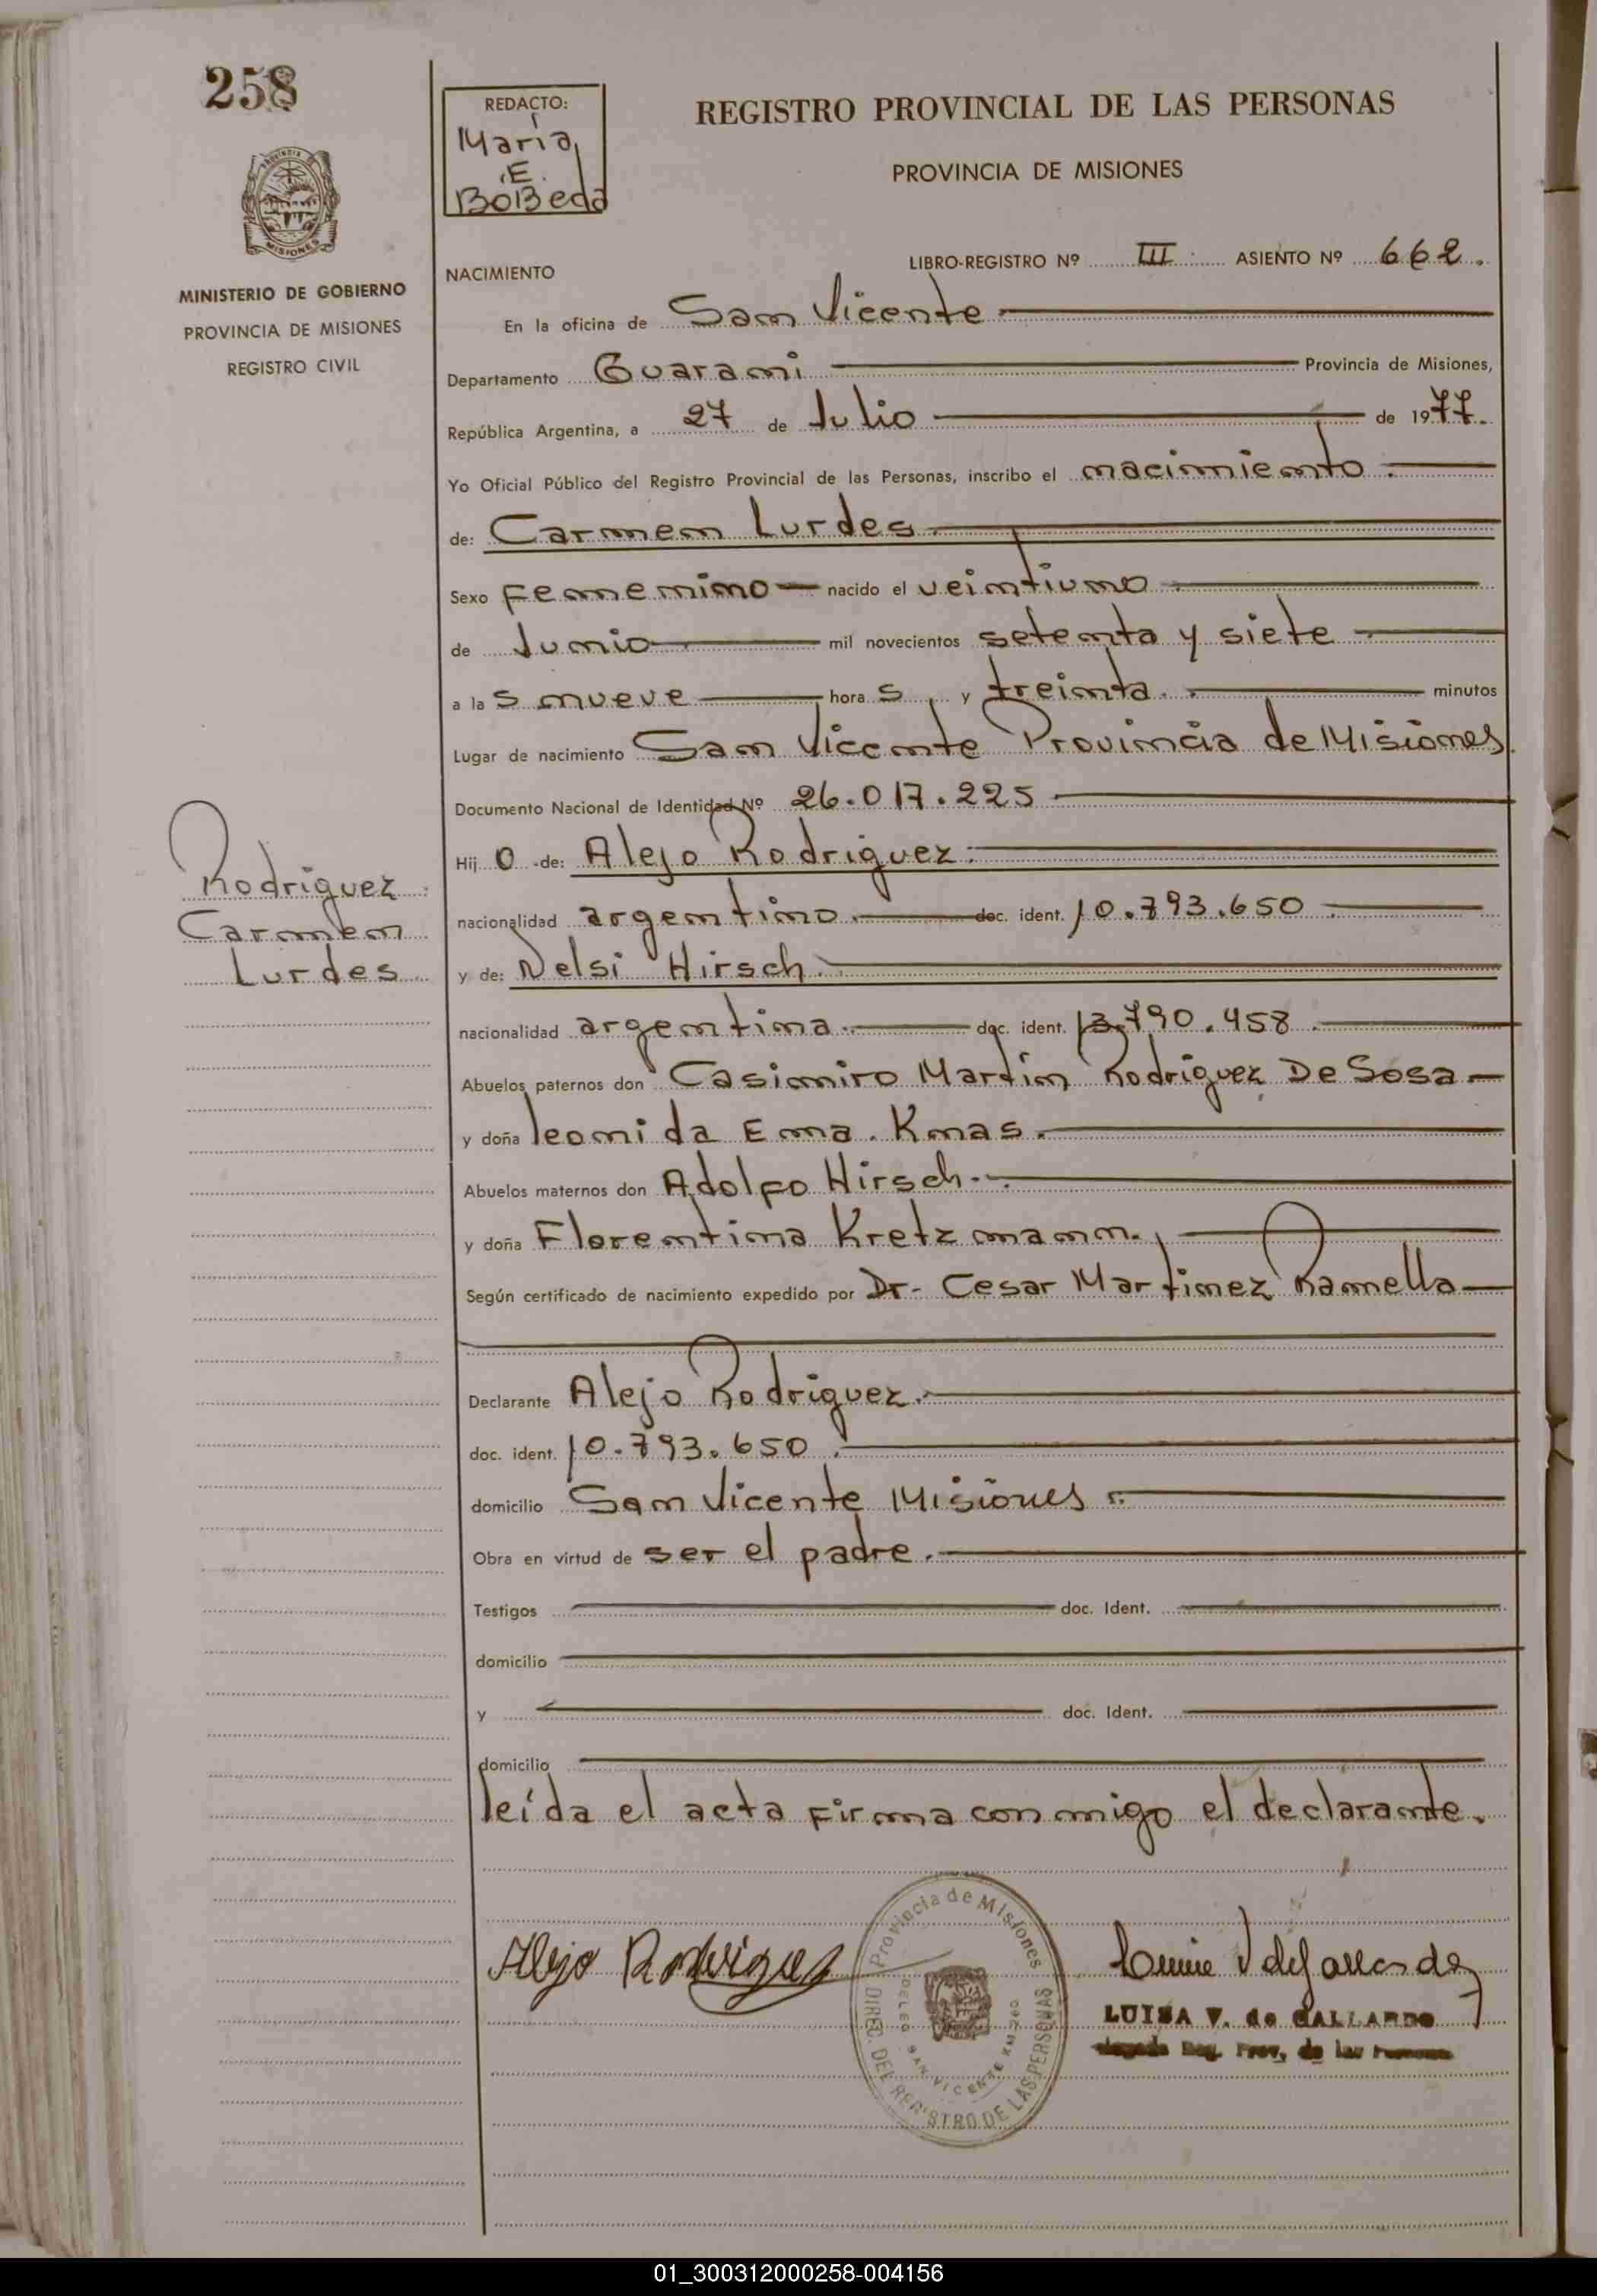 258
REDACTO:
María
E.
BoBeda
REGISTRO PROVINCIAL DE LAS PERSONAS
PROVINCIA DE MISIONES
MISIONES
MINISTERIO DE GOBIERNO
PROVINCIA DE MISIONES
REGISTRO CIVIL
LIBRO-REGISTRO Nº III ASIENTO Nº 662.
NACIMIENTO
En la oficina de San Vicente
Departamento Guarani Provincia de Misiones,
República Argentina, a 27 de Julio de 1977.
Yo Oficial Público del Registro Provincial de las Personas, inscribo el nacimiento.
de: Carmen Lurdes.
Sexo Femenino nacido el veintiuno
de Junio mil novecientos setenta y siete
a la s nueve hora s y treinta. minutos
Lugar de nacimiento San Vicente Provincia de Misiones.
Documento Nacional de Identidad Nº 26.017.225
Hij o de: Alejo Rodriguez.
nacionalidad argentino. doc. ident. 10.793.650
y de: Nelsi Hirsch.
nacionalidad argentina. doc. ident. 13.790.458
Abuelos paternos don Casimiro Martin Rodriguez De Sosa
y doña leonida Ema. Knas.
Abuelos maternos don Adolfo Hirsch.
y doña Florentina Kretzmann.
Según certificado de nacimiento expedido por Dr. Cesar Martinez Ramella
Declarante Alejo Rodriguez.
doc. ident. 10.793.650.
domicilio San Vicente Misiones
Obra en virtud de ser el padre.
Testigos doc. Ident.
domicilio
y doc. Ident.
domicilio
leída el acta firma conmigo el declarante.
Rodriguez
Carmen
Lurdes
Alejo Rodriguez
Provincia de Misiones
DIREC. DEL REGISTRO DE LAS PERSONAS
DELEG. SAN VICENTE KM 260
LUISA V. de GALLARDO
Reg. Prov. de las Personas
01_300312000258-004156